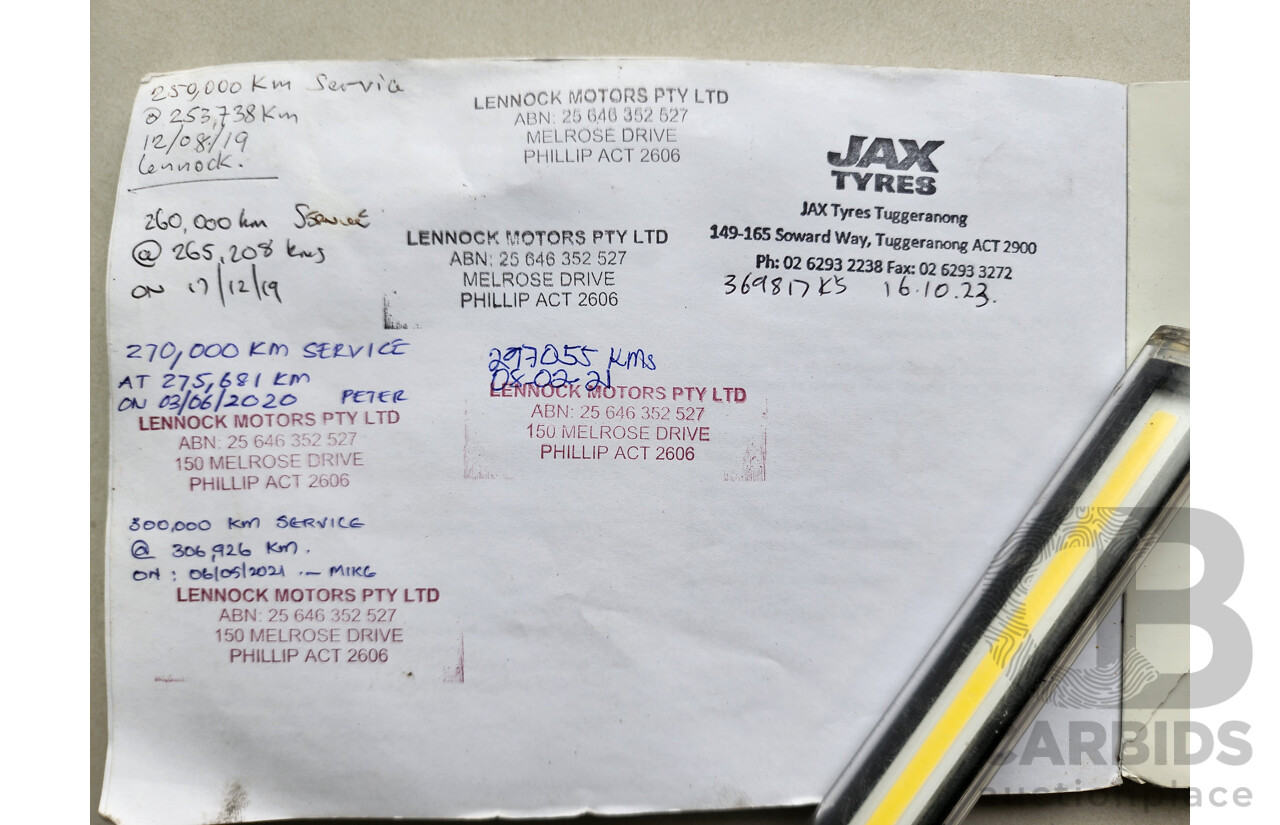 250,000 Km Service
@ 253,738 Km
12/08/19
Lennock.
LENNOCK MOTORS PTY LTD
ABN: 25 646 352 527
MELROSE DRIVE
PHILLIP ACT 2606
JAX
TYRES
JAX Tyres Tuggeranong
149-165 Soward Way, Tuggeranong ACT 2900
Ph: 02 6293 2238 Fax: 02 6293 3272
369817 KS 16.10.23.
260,000 km Service
@ 265,208 kms
ON 17/12/19
LENNOCK MOTORS PTY LTD
ABN: 25 646 352 527
MELROSE DRIVE
PHILLIP ACT 2606
270,000 KM SERVICE
AT 275,681 KM
ON 03/06/2020 PETER
LENNOCK MOTORS PTY LTD
ABN: 25 646 352 527
150 MELROSE DRIVE
PHILLIP ACT 2606
297055 KMs
08-02-21
LENNOCK MOTORS PTY LTD
ABN: 25 646 352 527
150 MELROSE DRIVE
PHILLIP ACT 2606
300,000 KM SERVICE
@ 306,926 KM.
ON : 06/05/2021 - MIKE
LENNOCK MOTORS PTY LTD
ABN: 25 646 352 527
150 MELROSE DRIVE
PHILLIP ACT 2606
CARBIDS
auction place